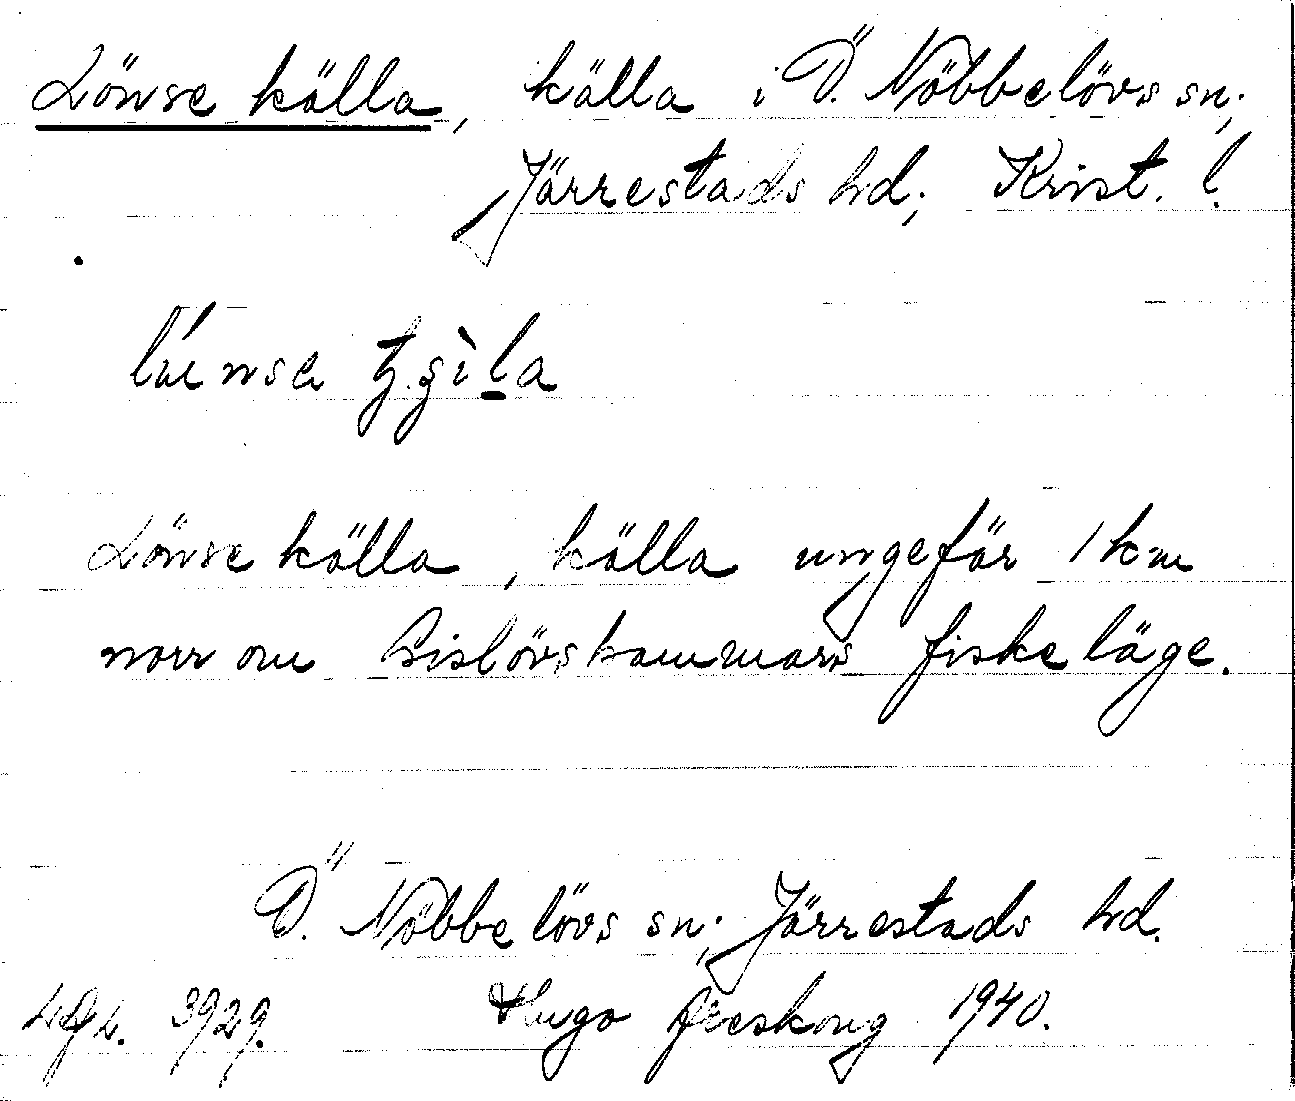 Lönse källa, källa i Ö. Nöbbelövs sn;
Järrestads hd; Krist. l.
Lönse källa, källa ungefär 1 km
norr om Gislövshammars fiskeläge.
Ö. Nöbbelövs sn; Järrestads hd.
3929. Hugo Areskoug 1940.